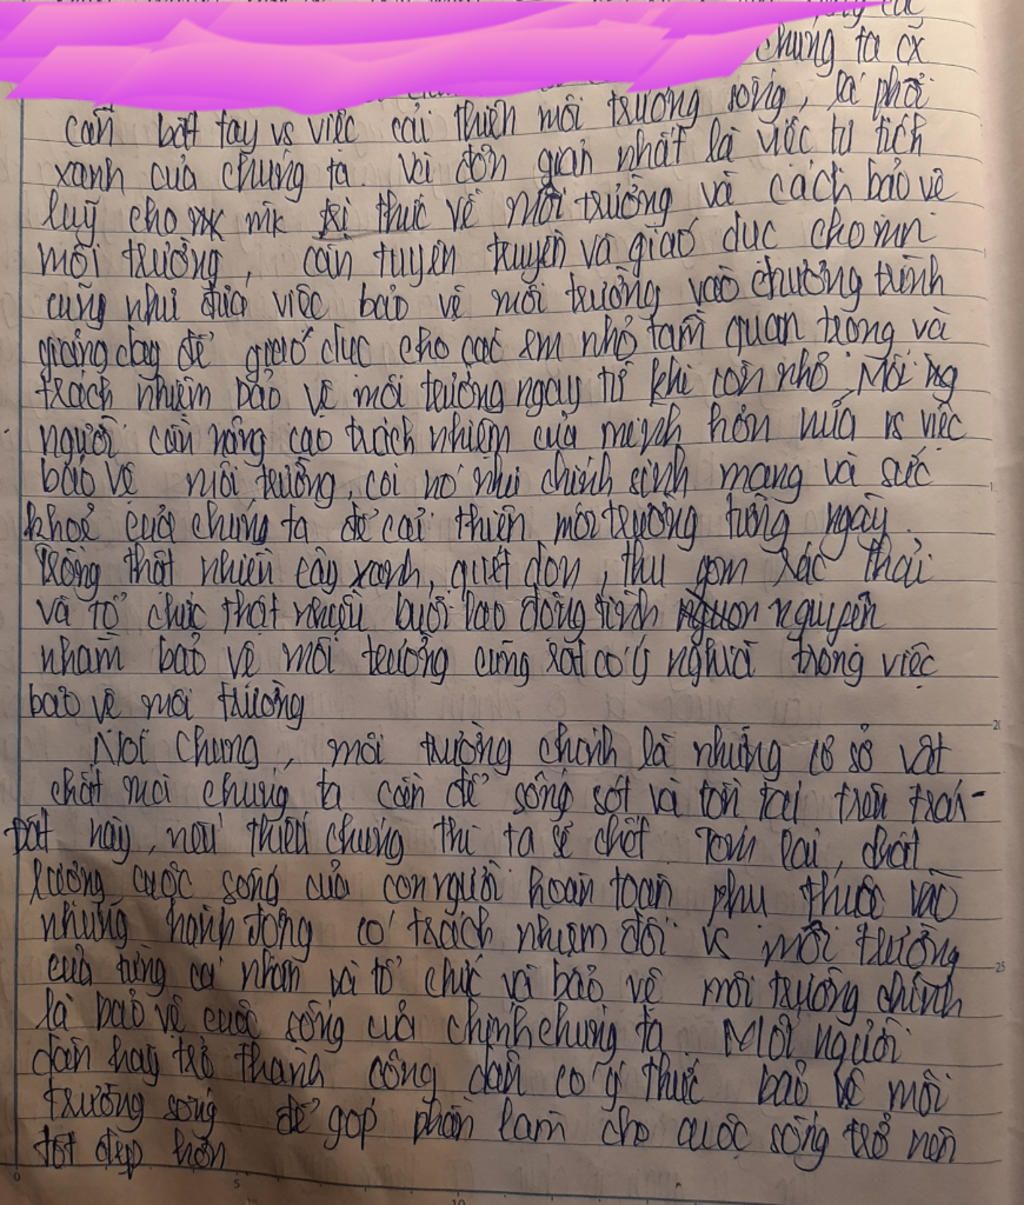 chúng ta cx
cần bắt tay vs việc cải thiện môi trường sống, lá phổi
xanh của chúng ta. Và đơn giản nhất là việc tự tích
luỹ cho mk kiến thức về môi trường và cách bảo vệ
môi trường, cần tuyên truyền và giáo dục cho mn
cũng như đưa việc bảo vệ môi trường vào chương trình
giảng dạy để giáo dục cho các em nhỏ tầm quan trọng và
trách nhiệm bảo vệ môi trường ngay từ khi còn nhỏ. Mỗi ng
người cần nâng cao trách nhiệm của mình hơn nữa vs việc
bảo vệ môi trường, coi nó như chính sinh mạng và sức
khoẻ của chúng ta để cải thiện môi trường từng ngày.
Trồng thật nhiều cây xanh, quét dọn, thu gom xác thải
và tổ chức thật nhiều buổi lao động tình nguyện
nhằm bảo vệ môi trường cũng rất có ý nghĩa trong việc
bảo vệ môi trường
Nói chung, môi trường chính là những cơ sở vật
chất mà chúng ta cần để sống sót và tồn tại trên trái
đất này, nếu thiếu chúng thì ta sẽ chết. Tóm lại, chất
lượng cuộc sống của con người hoàn toàn phụ thuộc vào
những hành động có trách nhiệm đối vs môi trường
của từng cá nhân và tổ chức và bảo vệ môi trường chính
là bảo vệ cuộc sống của chính chúng ta. Mỗi người
dân hãy trở thành công dân có ý thức bảo vệ môi
trường sống để góp phần làm cho cuộc sống trở nên
tốt đẹp hơn